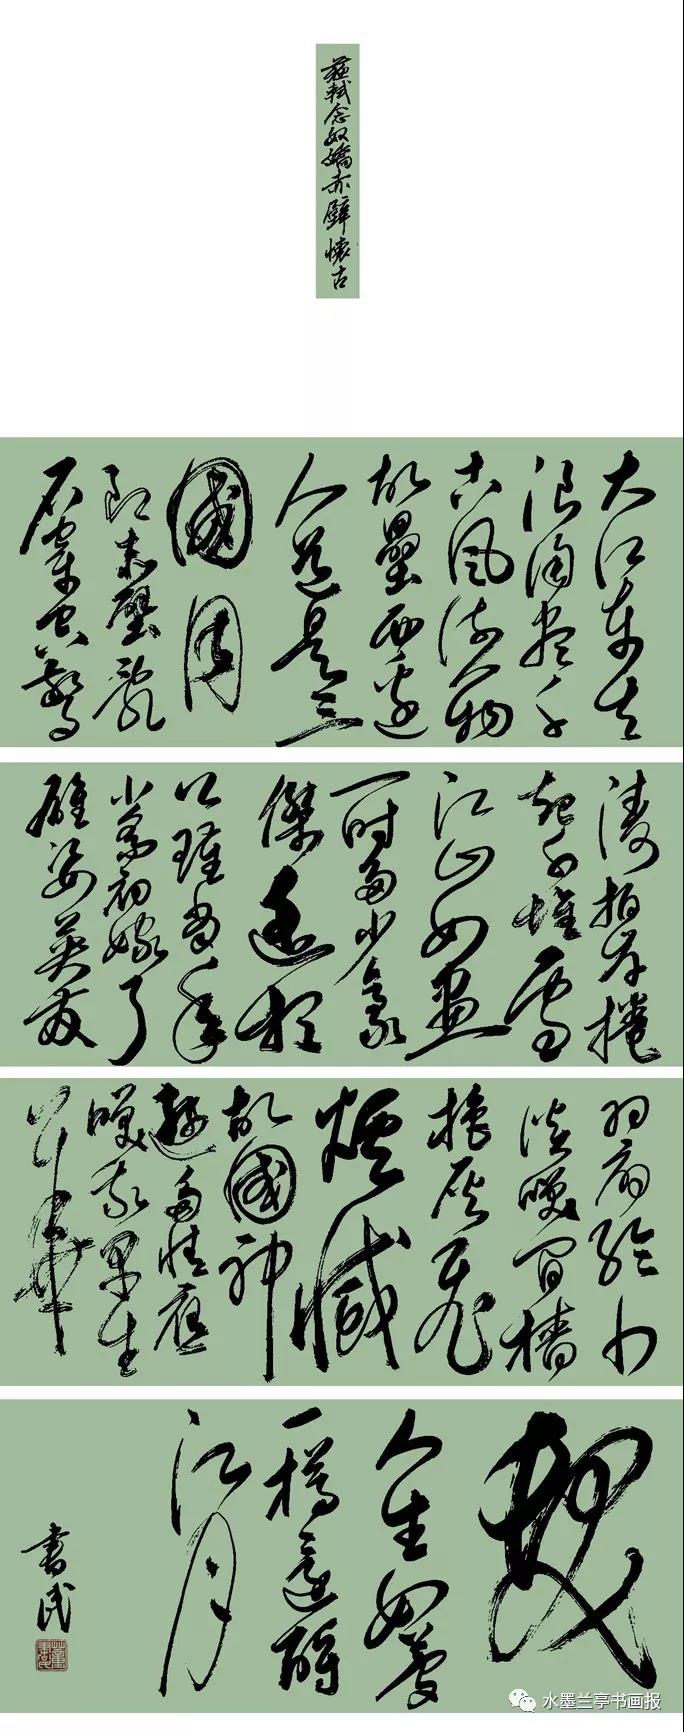 蘇軾念奴嬌赤壁懷古
大江東去
浪淘盡千
古風流人物
故壘西邊
人道是三
國周
郎赤壁亂
石穿空驚
濤拍岸捲
起千堆雪
江山如畫
一時多少豪
傑遙想
公瑾當年
小喬初嫁了
雄姿英發
羽扇綸巾
談笑間檣
櫓灰飛
煙滅
故國神
遊多情應
笑我早生
華
髮
人生如夢
一樽還酹
江月
書民
水墨兰亭书画报